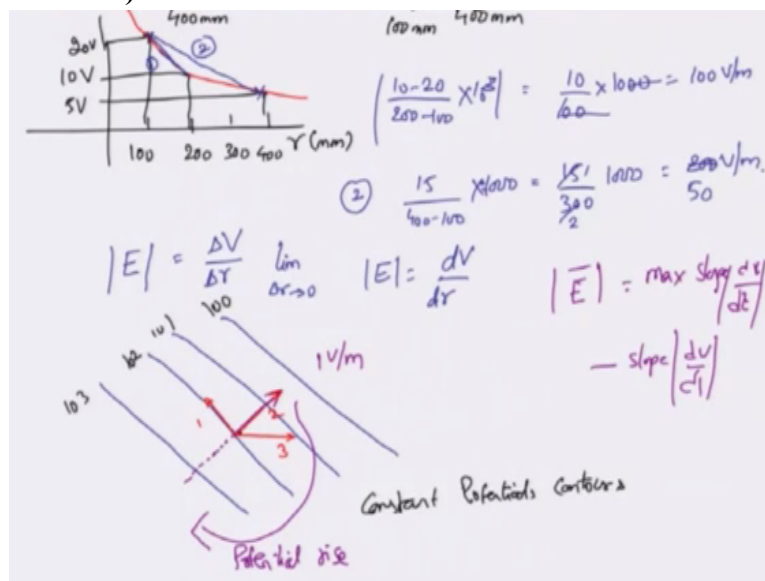 400mm
100mm 400mm
20V
②
①
10V
5V
100 200 300 400 r (mm)
| 10-20 / 200-100 × 10³ | = 10 / 100 × 1000 = 100 V/m
② 15 / 400-100 × 1000 = 15 / 300 1000 = V/m.
2
50
|E| = ΔV / Δr lim Δr→0 |E| = dV / dr
|E̅| = max slope
— slope | dV / dl |
103 102 101 100
1 V/m
1 2 3
Constant Potentials Contours
Potential rise